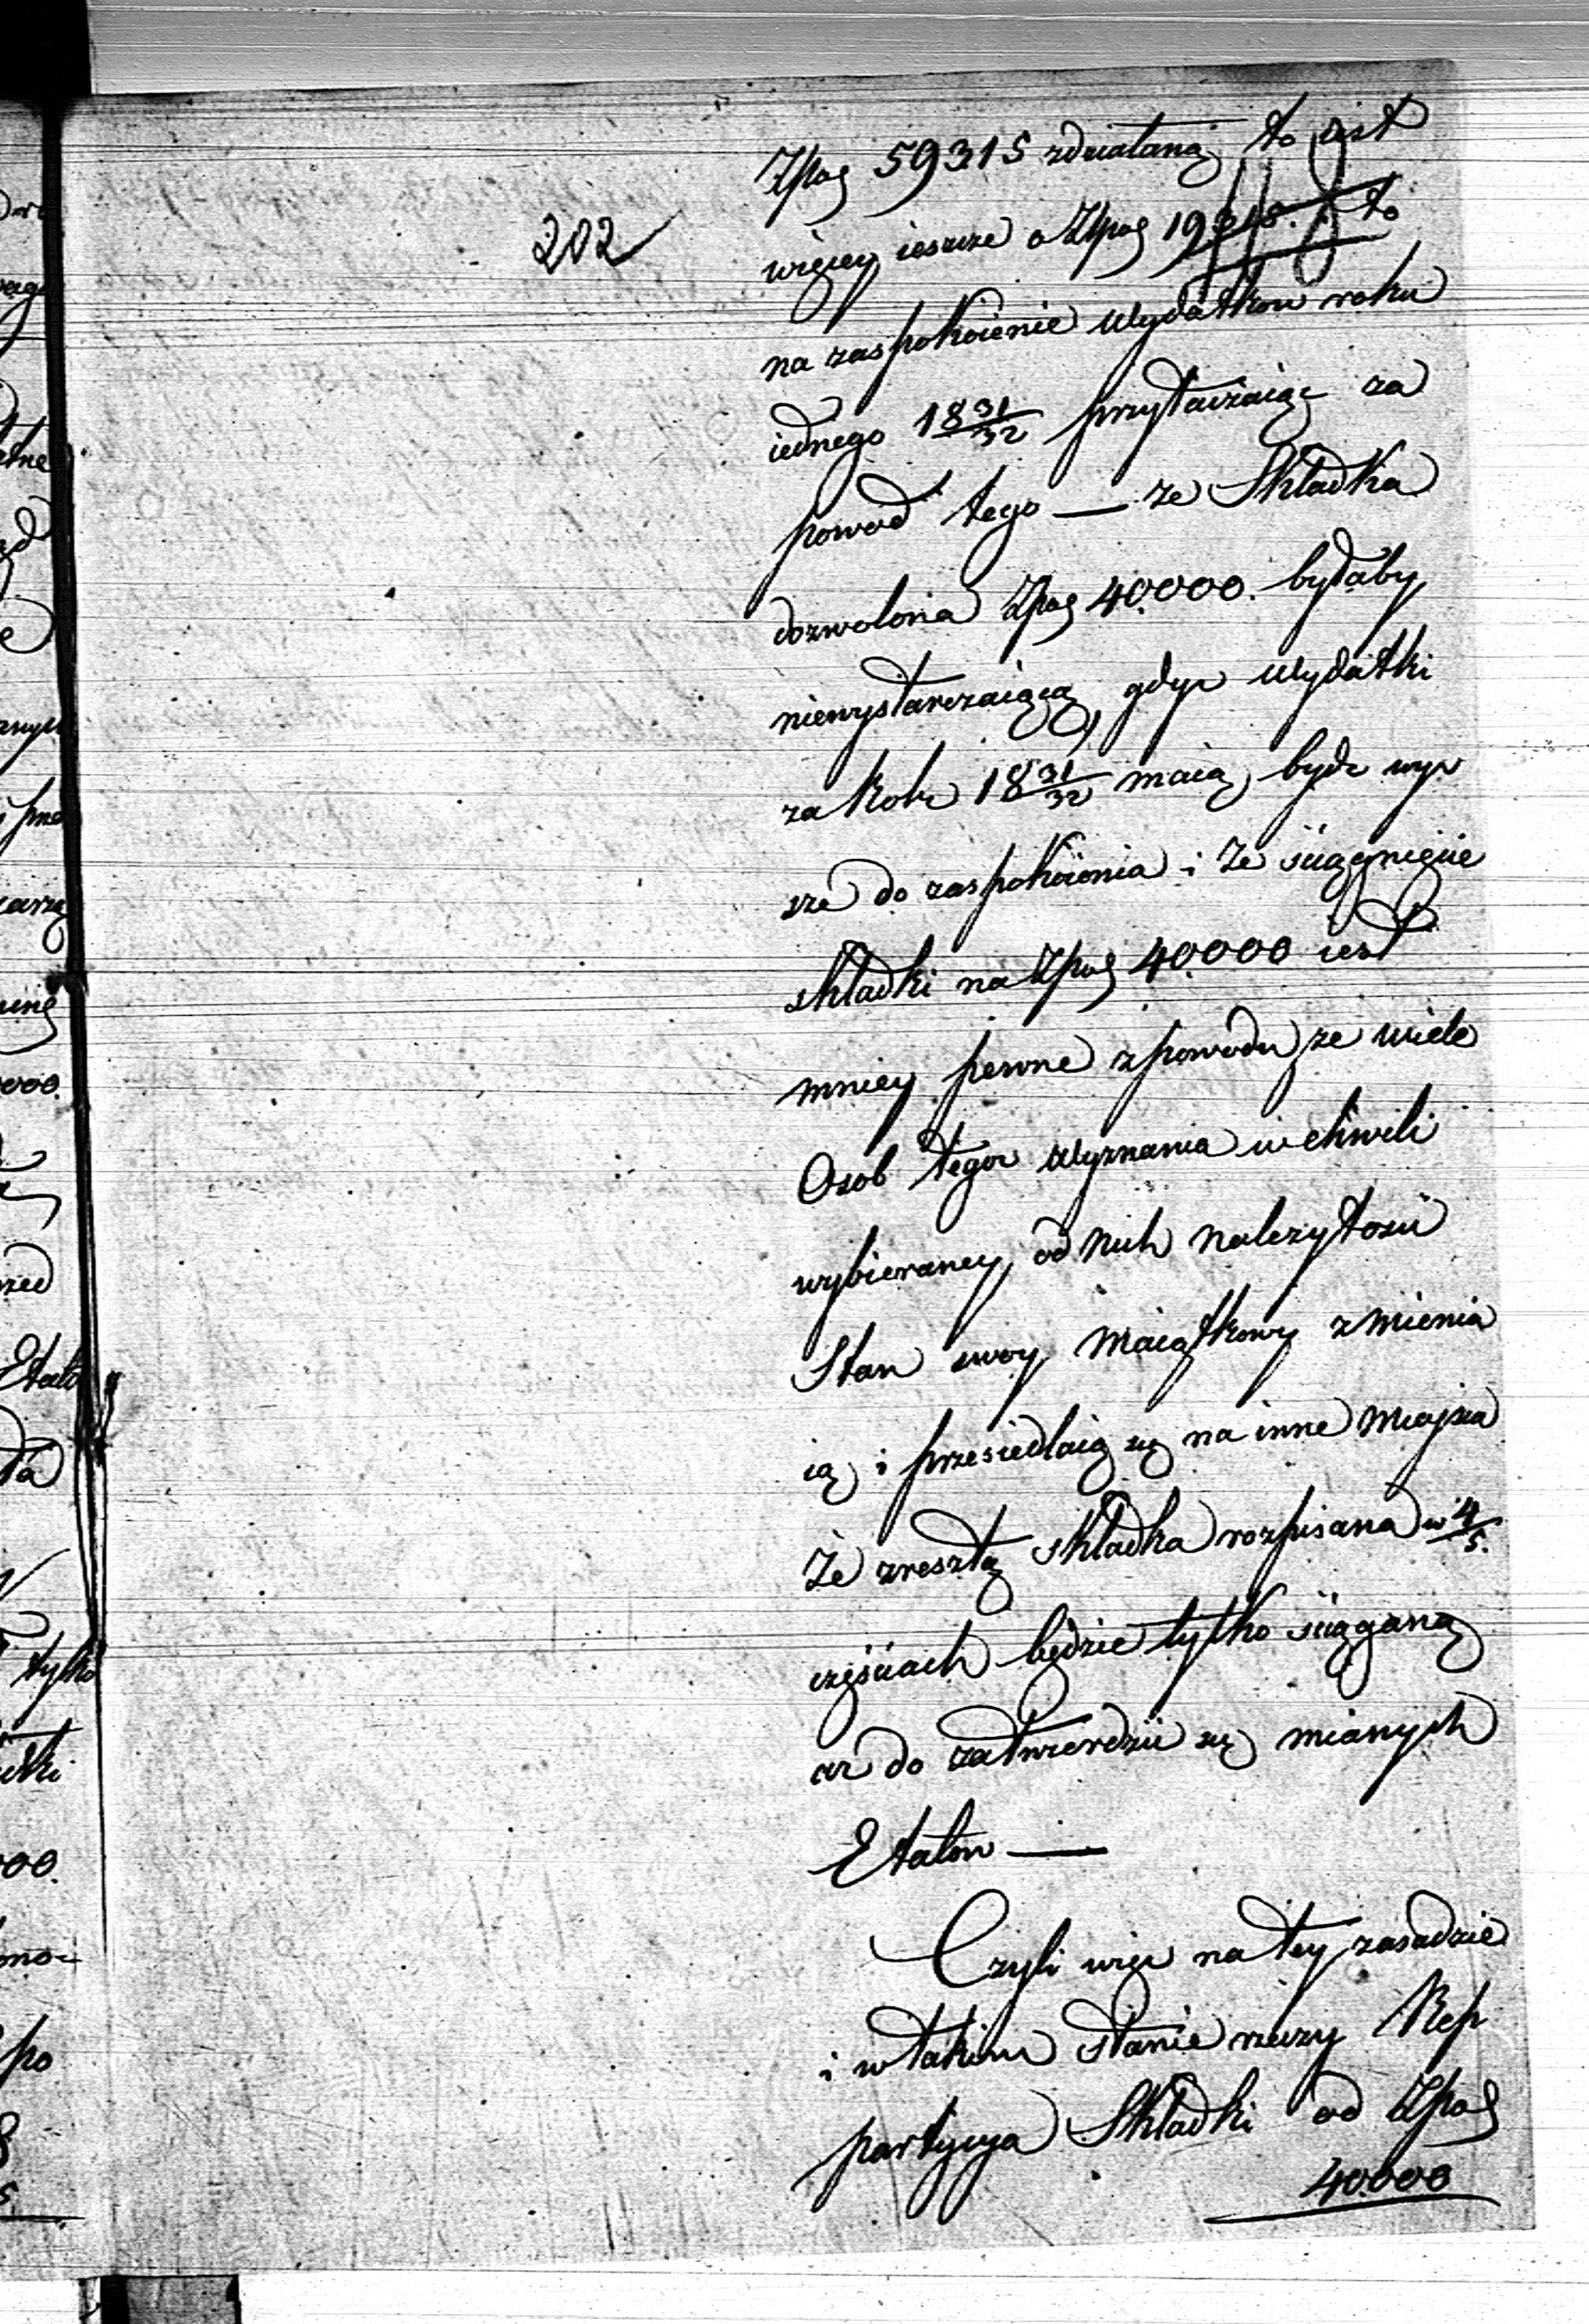 202
Zpol 59315 zdziałaną to iest
więcey ieszcze o Złpol 19315. to
na zaspokoienie Wydatkow roku
iednego 18 31/32 przytaczaiąc za
powod tego — że Składka
dozwolona Zpol 40000. byłaby
niewystarczaiącą, gdyż Wydatki
za Rok 18 31/32 maią bydz wyż
sze do zaspokoienia i że ściągnięcie
składki na Złpol 40000 iest
mniey pewne z powodu że wiele
Osob tegoż Wyznania w chwili
wybieraney od nich należytości
Stan swoy Maiątkowy zmienia
ią i przesiedlaią się na inne Miejsca
Że zresztą składka rozpisana w 4/5.
częściach będzie tylko ściąganą
aż do zatwierdzić się mianych
Etatow —
Czyli więc na tey zasadzie
i w takim stanie rzeczy Rep
partycya Składki od Zpol
40000